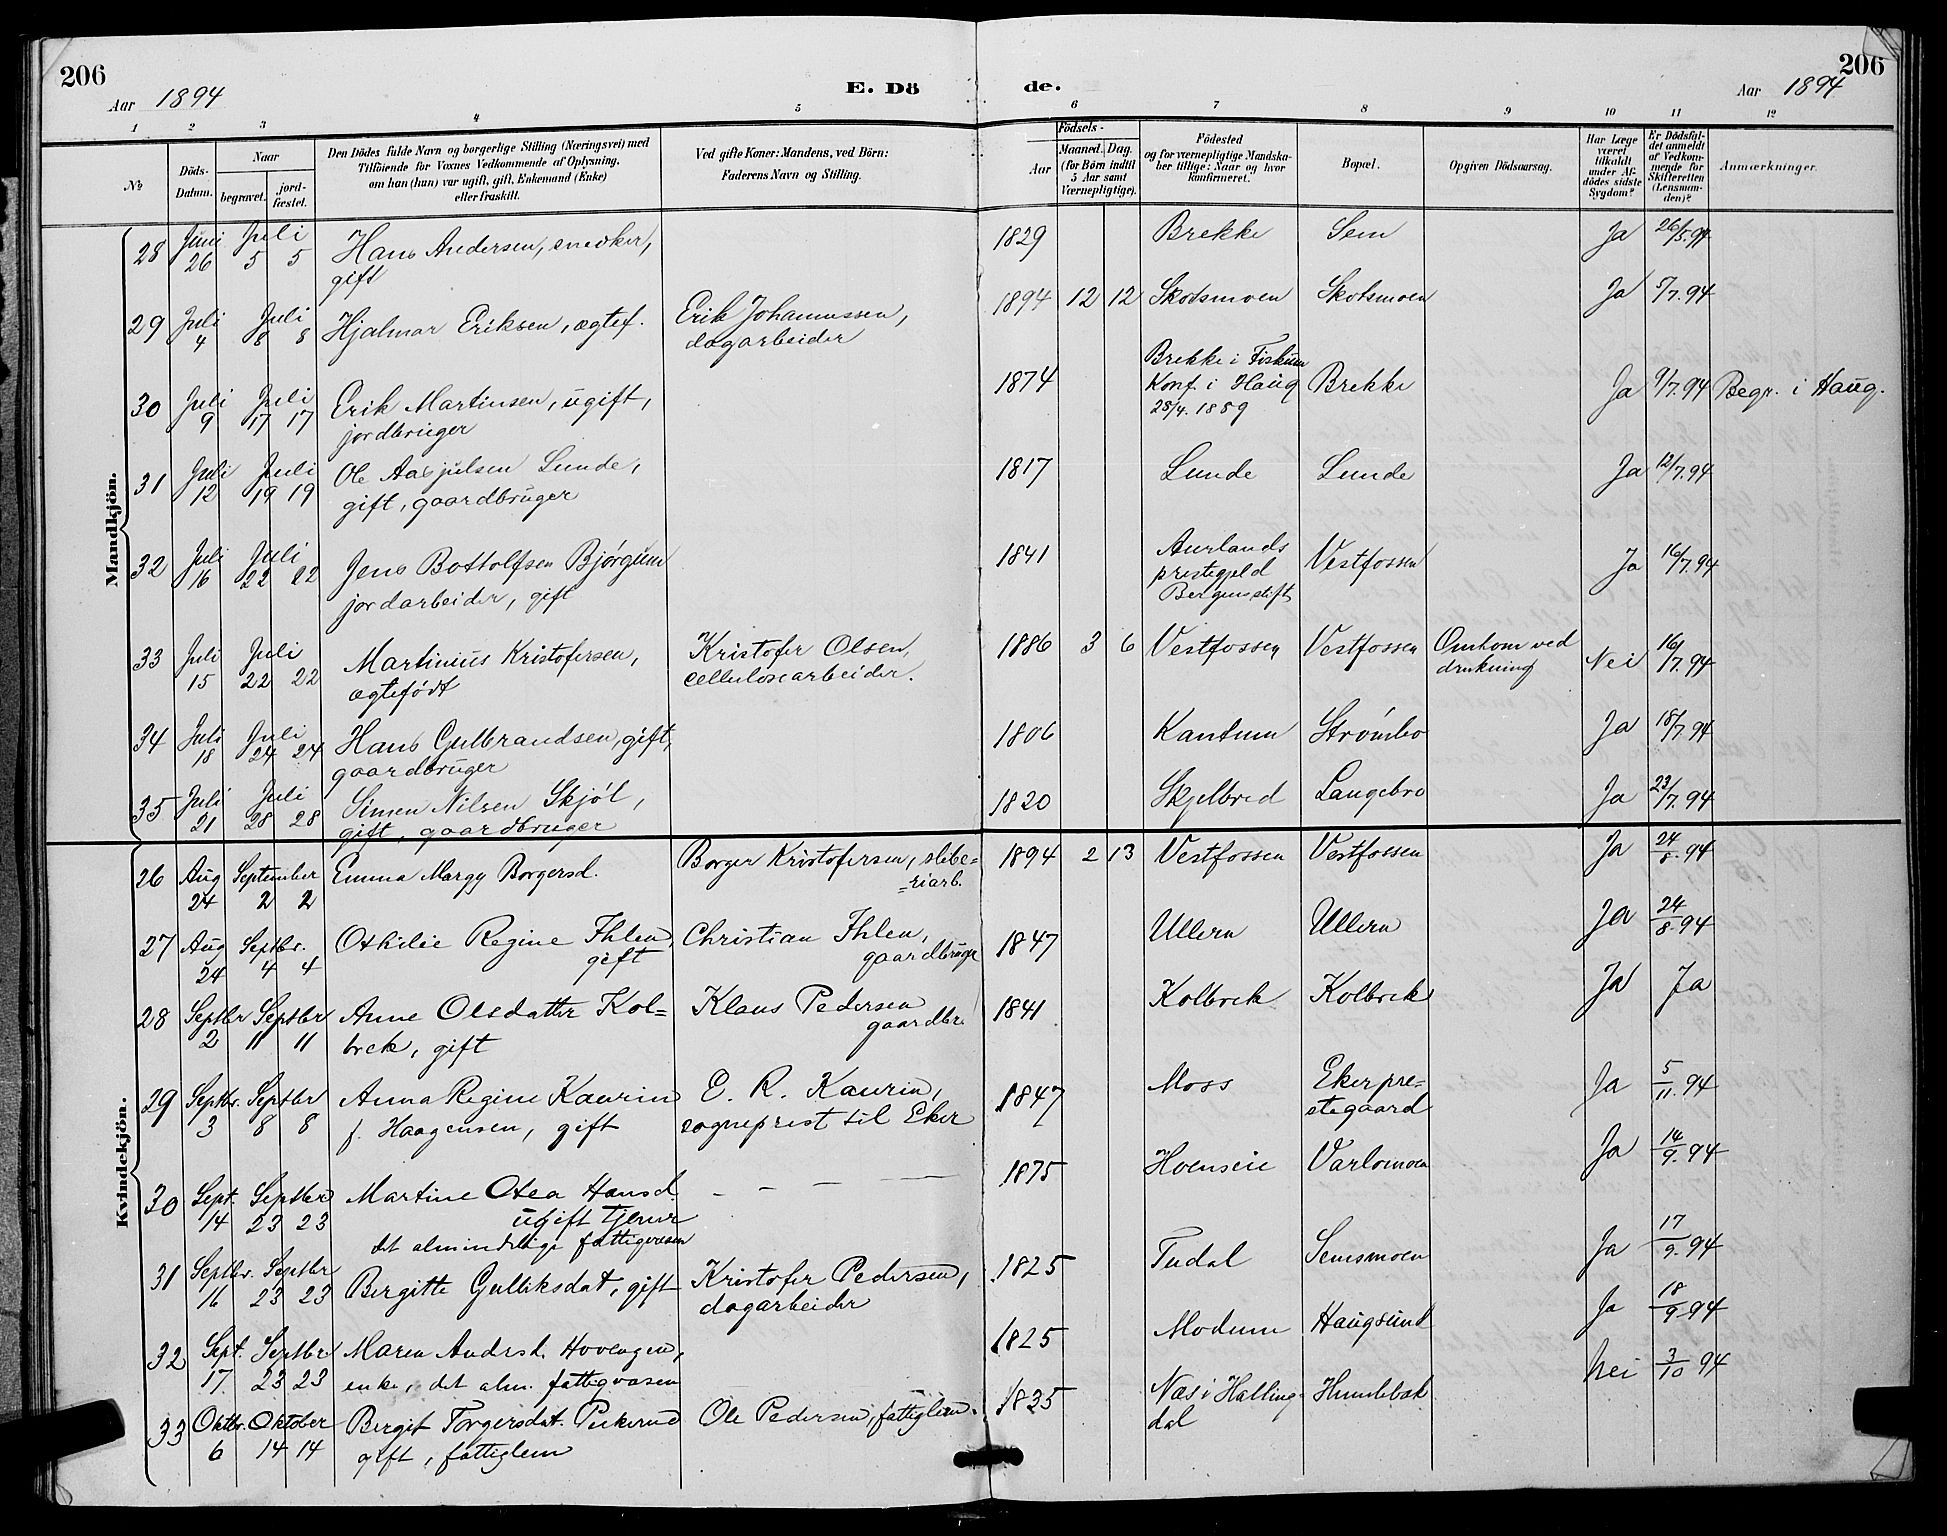 206
206
Aar 1894
E. Dö
de.
Aar 1894
1 2 3 4 5 6 7 8 9 10 11 12
№
Döds-
Datum.
Naar
begravet.
jord-
fæstet.
Den Dödes fulde Navn og borgerlige Stilling (Næringsvei) med
Tilföiende for Voxnes Vedkommende af Oplysning,
om han (hun) var ugift, gift, Enkemand (Enke)
eller fraskilt.
Ved gifte Koner: Mandens, ved Börn:
Faderens Navn og Stilling.
Födsels-
Aar
Maaned. Dag.
(for Börn indtil
5 Aar samt
Værnepligtige).
Födested
og for værnepligtige Mandska-
ber tillige: Naar og hvor
konfirmeret.
Bopæl.
Opgiven Dödsaarsag.
Har Læge
været
tilkaldt
under Af-
dödes sidste
Sygdom?
Er Dödsfal-
det anmeldt
af Vedkom-
mende for
Skifteretten
(Lensman-
den)?
Anmærkninger.
Mandkjön.
28 Juni Juli Hans Andersen, snedker, 1829 Brekke Sem Ja 26/5.94
26 5 5 gift
29 Juli Juli Hjalmar Eriksen, ægtef. Erik Johannessen, 1894 12 12 Skotsmoen Skotsmoen Ja 5/7.94
4 8 8 dagarbeider
30 Juli Juli Erik Martinsen, ugift, 1874 Brekke i Fiskum Brekke Ja 9/7.94 Begr. i Haug.
9 17 17 jordbruger Konf. i Haug
28/4. 1889
31 Juli Juli Ole Aasjulsen Lunde, 1817 Lunde Lunde Ja 12/7.94
12 19 19 gift, gaardbruger
32 Juli Juli Jens Bottolfsen Bjørgum 1841 Aurlands Vestfossen Ja 16/7.94
16 22 22 jordarbeider, gift prestegjeld
Bergens stift
33 Juli Juli Martinius Kristofersen, Kristofer Olsen, 1886 3 6 Vestfossen Vestfossen Omkom ved Nei 16/7.94
15 22 22 ægtefødt cellulosearbeider. drukning
34 Juli Juli Hans Gulbrandsen, gift, 1806 Kantum Strømbo Ja 18/7.94
18 24 24 gaardbruger
35 Juli Juli Simen Nilsen Skjøl, 1820 Skjelbred Langebro Ja 23/7.94
21 28 28 gift, gaardbruger
Kvindekjön.
26 Aug September Emma Margy Borgersd. Borger Kristofersen, slibe- 1894 2 13 Vestfossen Vestfossen Ja 24/8.94
24 2 2 =riarb.
27 Aug Septbr. Othilie Regine Ihlen, Christian Ihlen, 1847 Ullern Ullern Ja 24/8.94
24 4 4 gift gaardbruge
28 Septbr Septbr Anne Olsdatter Kol= Klaus Pedersen 1841 Kolbrek Kolbrek Ja Ja
2 11 11 brek, gift gaardbr.
29 Septbr. Septbr Anna Regine Kaurin E. R. Kaurin, 1847 Moss Eker pre= Ja 5/11.94
3 8 8 f. Haagensen, gift sogneprest til Eker stegaard
30 Sept. Septbr Martine Olea Hansd. — — — — 1875 Hoenseie Varlomoen Ja 14/9.94
14 23 23 ugift tjener
det almindelige fattigvæsen
31 Septbr. Septbr Birgitte Gulliksdat, gift Kristofer Pedersen, 1825 Tudal Semsmoen Ja 17/9.94
16 23 23 dagarbeider
32 Sept. Septbr Maren Andersd. Hovengen, 1825 Modum Haugsund Ja 18/9.94
17. 23 23 enke, det alm. fattigvæsen
33 Oktbr. Oktober Birgit Torgersdat. Ole Pedersen, fattiglem. 1835 Næs i Halling- Humlebæk Nei 3/10 94
6 14 14 gift, fattiglem dal